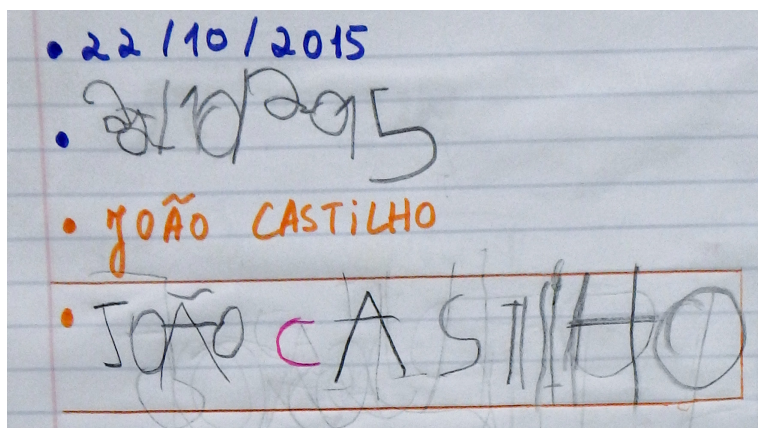 22/10/2015
22/10/2015
JOÃO CASTiLHO
JOÃO CASTILHO